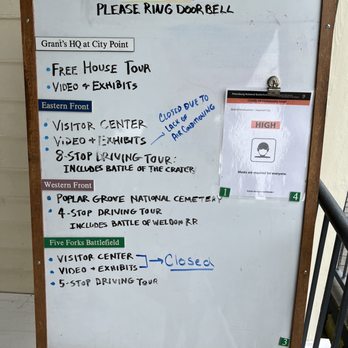 PLEASE RING DOORBELL
Grant's HQ at City Point
• FREE HOUSE TOUR
• VIDEO + EXHIBITS
Eastern Front
• VISITOR CENTER
• VIDEO + EXHIBITS
CLOSED DUE TO
LACK OF
AIR CONDITIONING
• 8-STOP DRIVING TOUR:
INCLUDES BATTLE OF THE CRATER
Western Front
• POPLAR GROVE NATIONAL CEMETERY
• 4-STOP DRIVING TOUR
INCLUDES BATTLE OF WELDON R.R.
Five Forks Battlefield
• VISITOR CENTER
• VIDEO + EXHIBITS
→ Closed
• 5-STOP DRIVING TOUR
HIGH
Masks are required for everyone
1
4
3